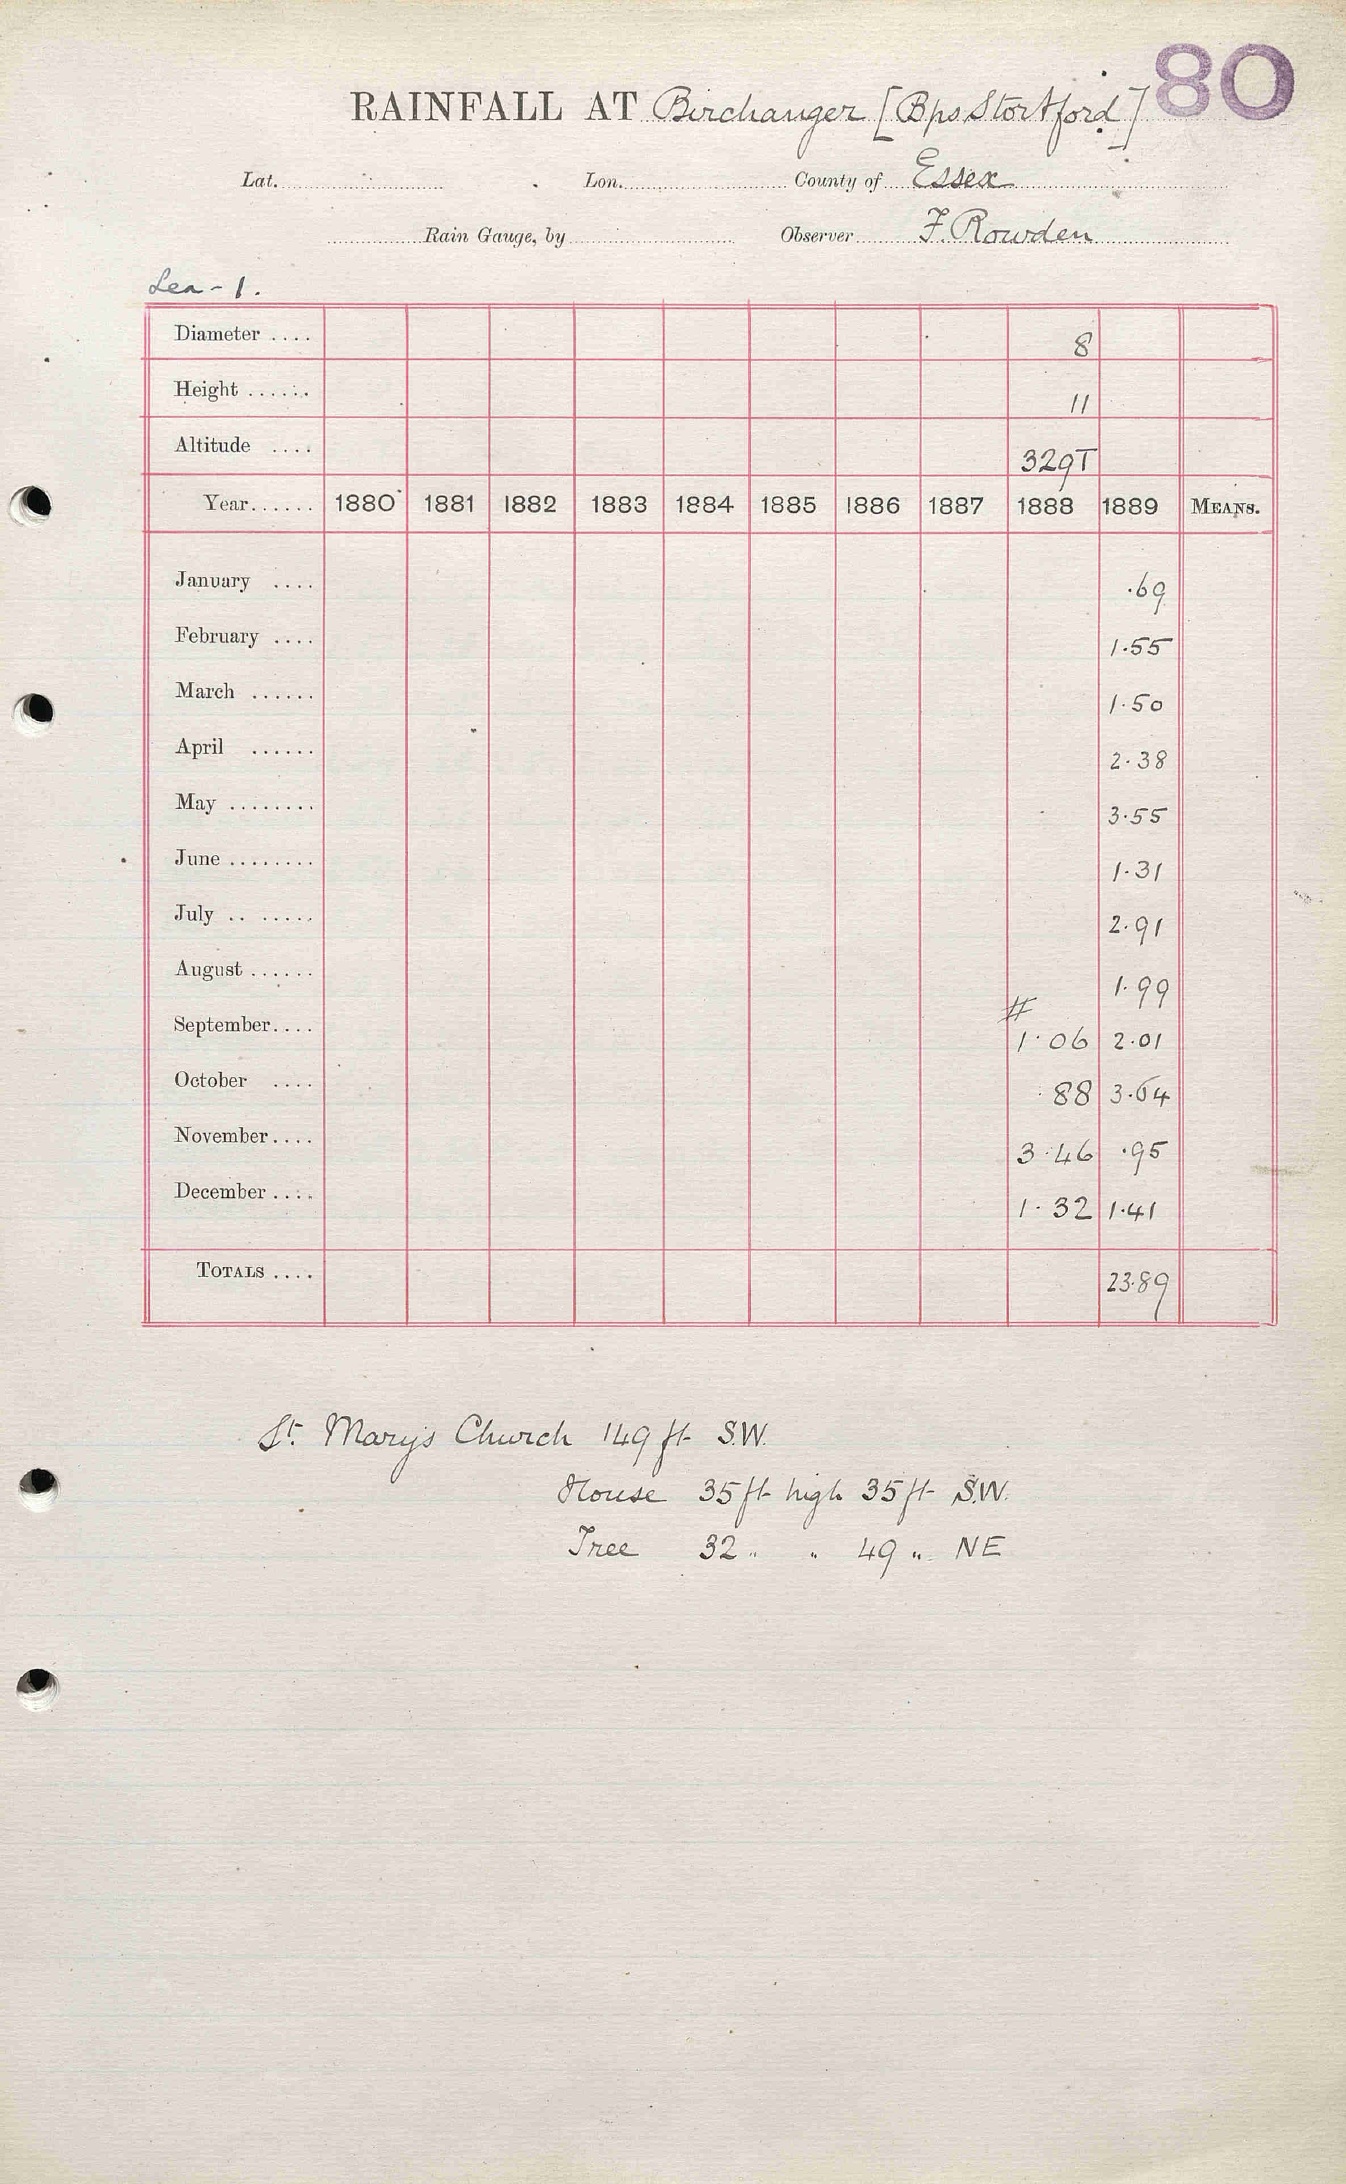 80
RAINFALL AT Birchanger [Bps Stortford]
Lat. Lon. County of Essex
Rain Gauge, by Observer F. Rowden
Lea - 1.
Diameter .... 8
Height ...... 11
Altitude .... 329T
Year...... 1880 1881 1882 1883 1884 1885 1886 1887 1888 1889 MEANS.
January .... .69
February .... 1.55
March ...... 1.50
April ...... 2.38
May ........ 3.55
June ........ 1.31
July .. ...... 2.91
August ...... 1.99
#
September.... 1.06 2.01
October .... .88 3.64
November.... 3.46 .95
December .... 1.32 1.41
TOTALS .... 23.89
St. Mary's Church 149 ft S.W.
House 35 ft high 35 ft S.W.
Tree 32 " " 49 " NE